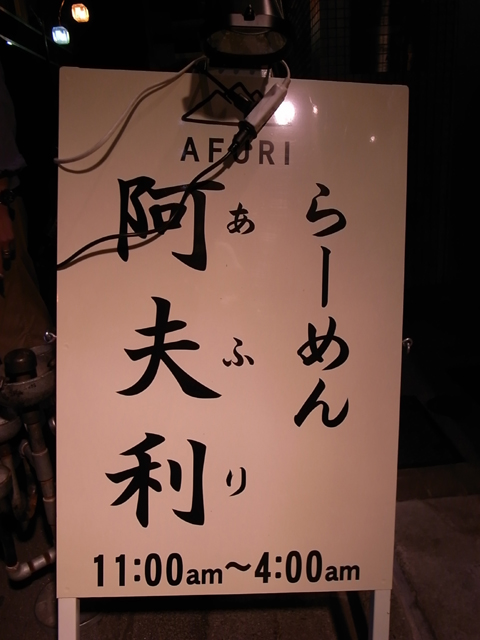 AFURI
らーめん
阿夫利
あふり
11:00am～4:00am